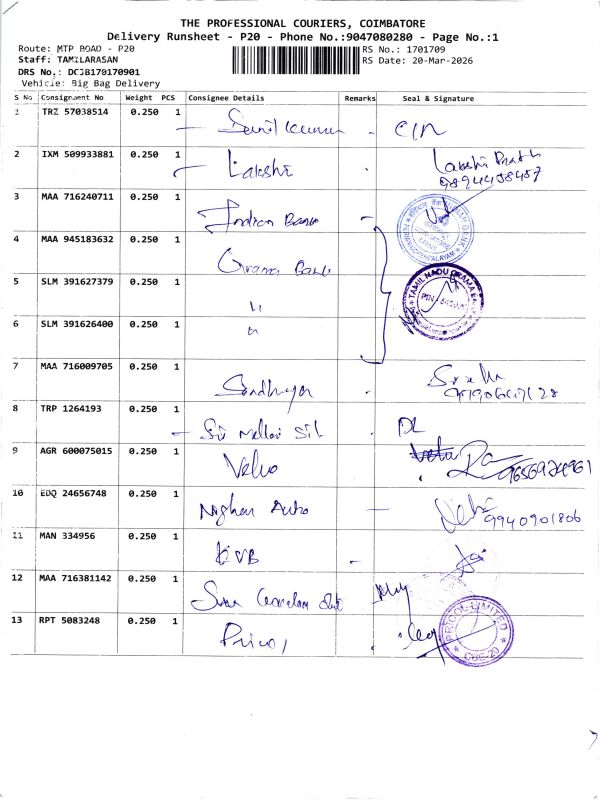 THE PROFESSIONAL COURIERS, COIMBATORE
Delivery Runsheet - P20 - Phone No.:9047080280 - Page No.:1
Route: MTP ROAD - P20
RS No.: 1701709
Staff: TAMILARASAN
RS Date: 20-Mar-2026
DRS No.: DCJB170170901
Vehicle: Big Bag Delivery
S No Consignment No Weight PCS Consignee Details Remarks Seal & Signature
1 TRZ 57038514 0.250 1 Sunil Kumar
2 IXM 509933881 0.250 1 Lakshi
9894458457
3 MAA 716240711 0.250 1 Indian Bank
4 MAA 945183632 0.250 1 Grama Bank
TAMIL NADU GRAMA
5 SLM 391627379 0.250 1 "
6 SLM 391626400 0.250 1 "
7 MAA 716009705 0.250 1 Sandhya
8 TRP 1264193 0.250 1 Sri
9 AGR 600075015 0.250 1
9656924961
10 EDQ 24656748 0.250 1 Auto
9940901806
11 MAN 334956 0.250 1 KVB
12 MAA 716381142 0.250 1
13 RPT 5083248 0.250 1 Pricol
PRICOL LIMITED
CBE-20